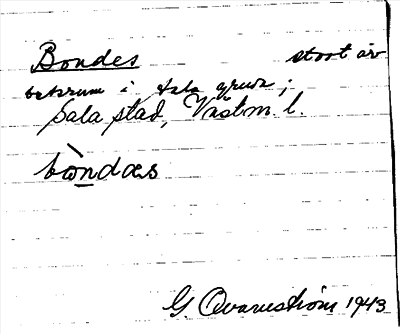 Bondes stort äv
betsrum i Sala gruva;
Sala stad, Västm. l.
bòndæs
G. Qvarnström 1943